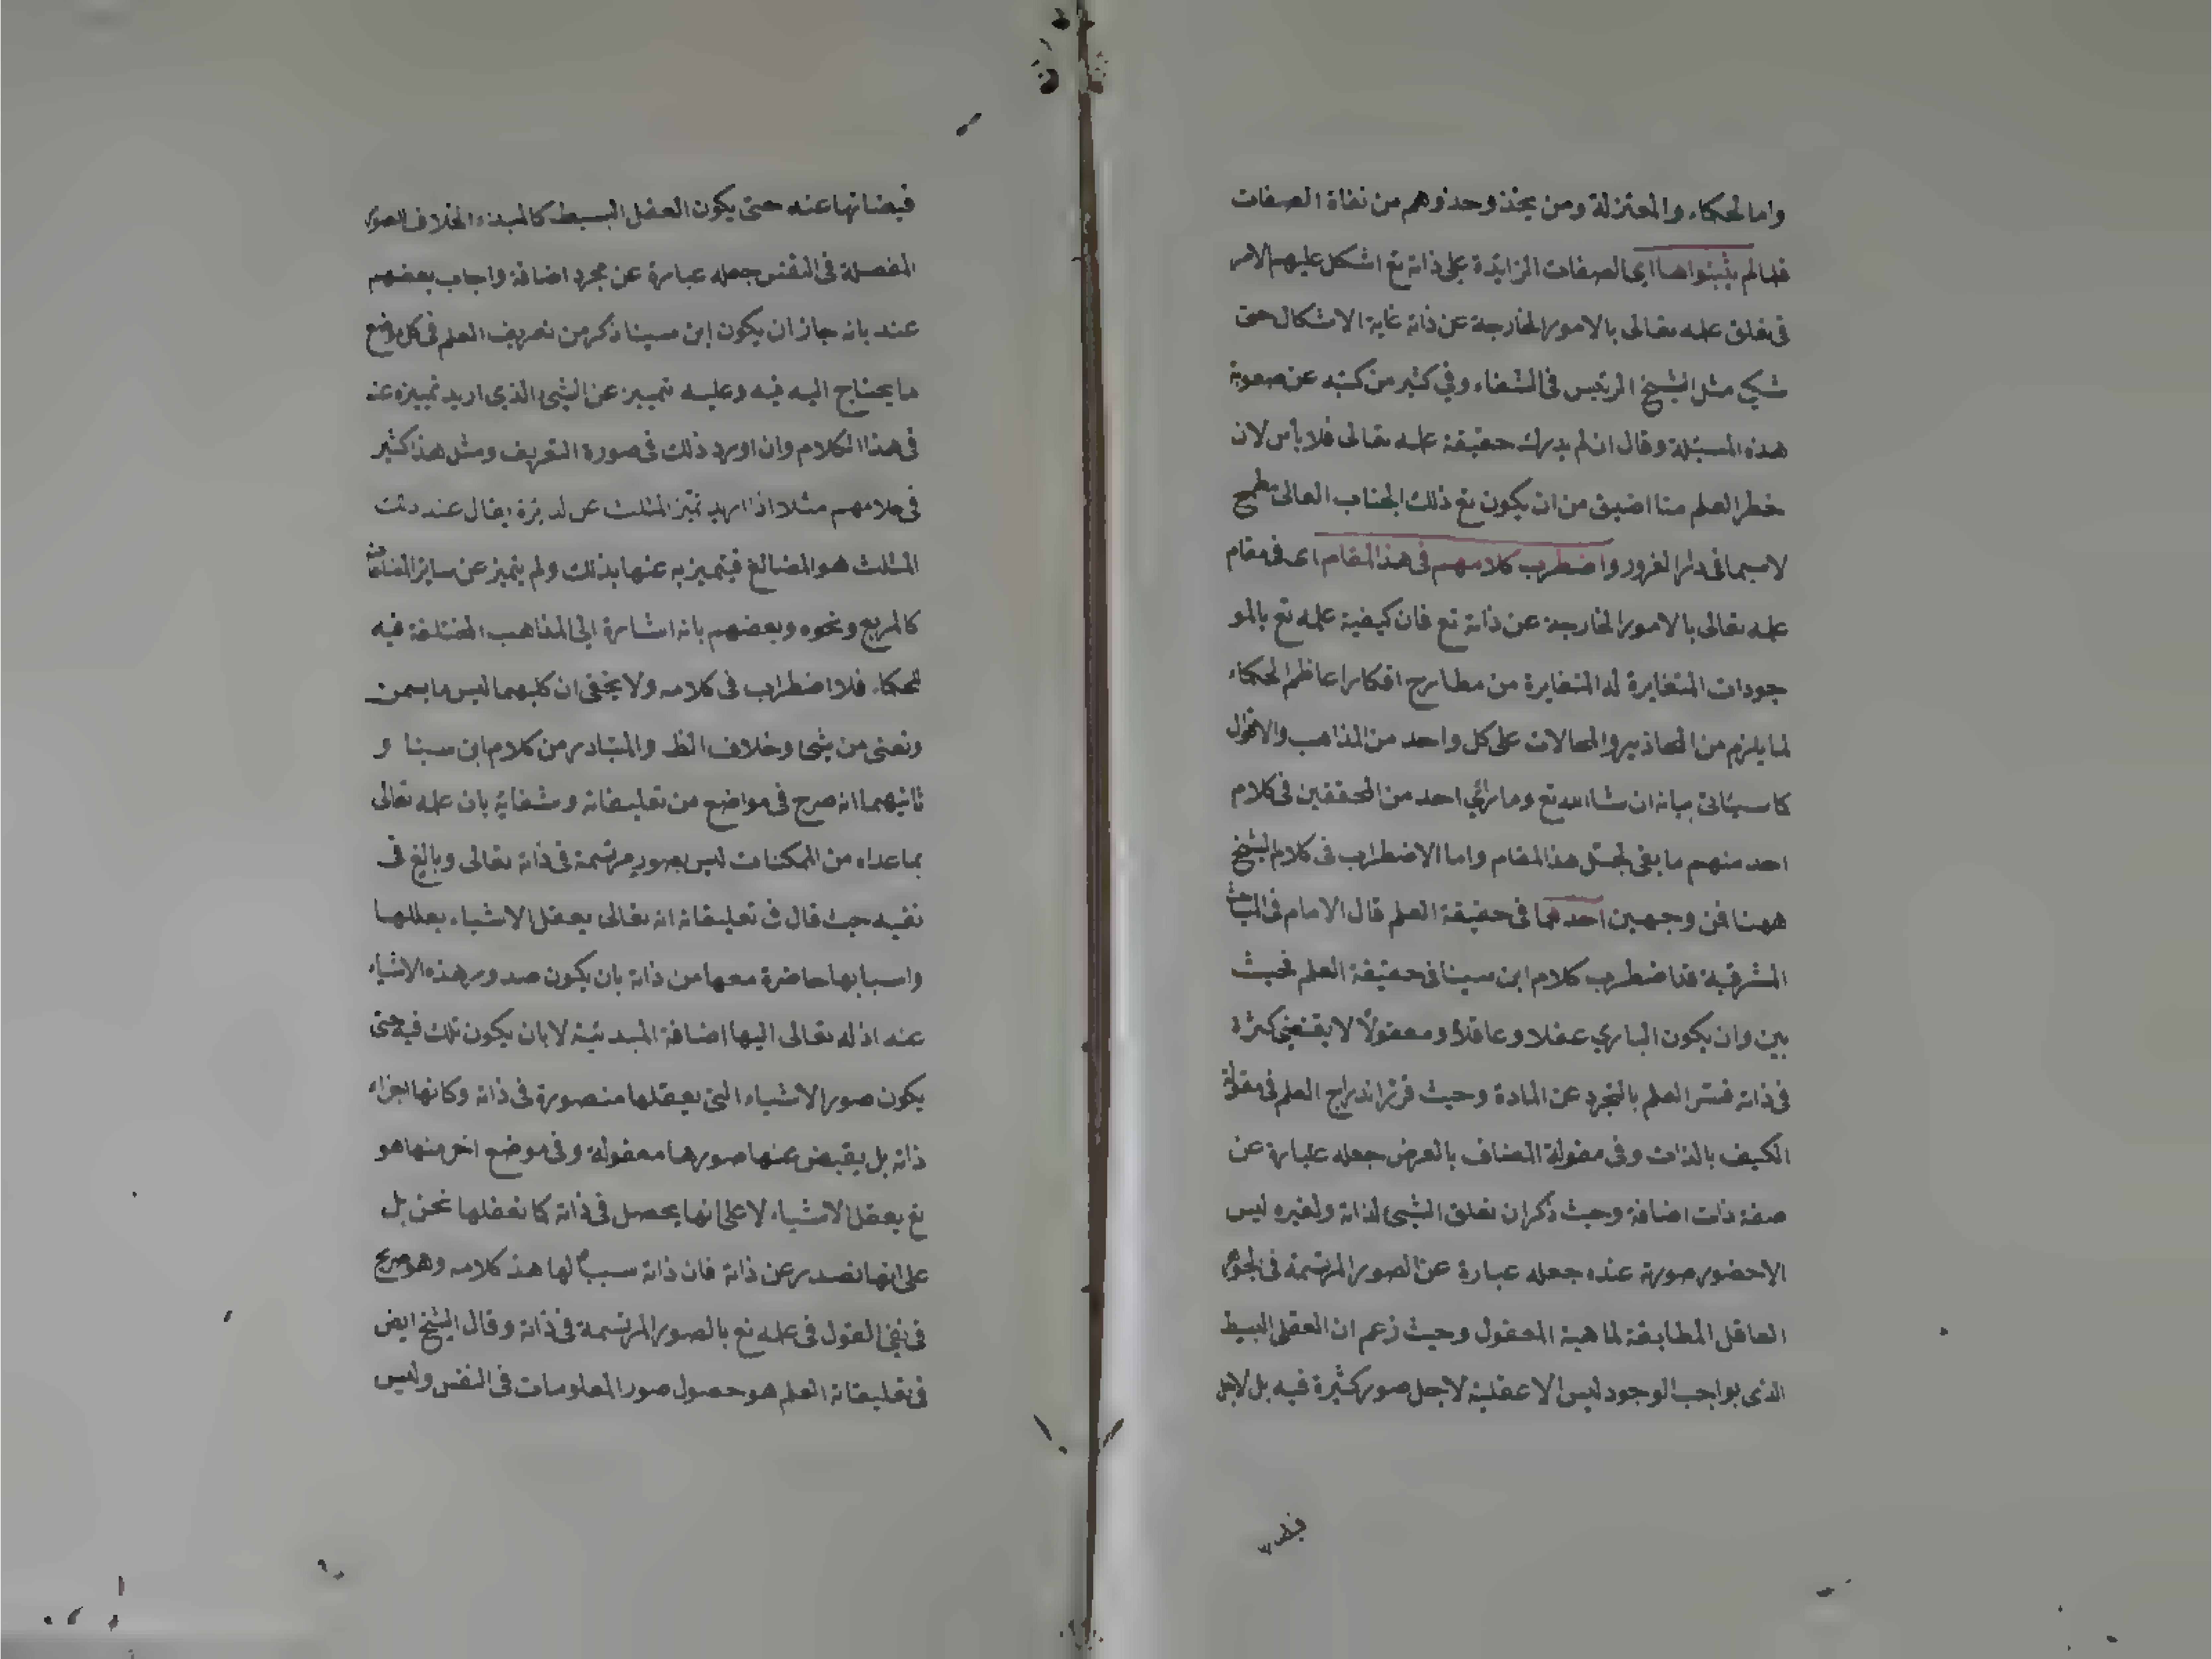 واما الحكماء والمعتزلة ومن يحذو حذوهم من نفاة الصفات
فلما لم يثبتواها اى الصفات الزايدة على ذاته تع اشكل عليهم الامر
فى تعلق علمه تعالى بالامور الخارجة عن ذاته غاية الاشكال حتى
شكى مثل الشيخ الرئيس فى الشفاء وفي كثير من كتبه عن صعوبة
هذه المسئلة وقال ان لم يدرك حقيقة علمه تعالى فلا بأس لان
خطر العلم منا اضيق من ان يكون تع ذلك الجناب العالى مطمح
لاسيما فى دار الغرور واضطرب كلامهم فى هذا المقام اى فى مقام
علمه تعالى بالامور الخارجة عن ذاته تع فان كيفية علمه تع بالمو
جودات المتغايرة له المتغايرة من مطارح افكار اعاظم الحكماء
لما يلزم من المحاذير والمحالات على كل واحد من المذاهب والاقوال
كما سيئاتى بيانه ان شاالله تع وما رائي احد من المحققين فى كلام
احد منهم ما يفى لحل هذا المقام واما الاضطراب فى كلام الشيخ
ههنا فمن وجهين احدهما فى حقيقة العلم قال الامام فى المباحث
المشرقية قد اضطرب كلام ابن سينا فى حقيقة العلم فحيث
بين وان يكون الباري عقلا وعاقلا ومعقولًا لا يقتضي كثرة
فى ذاته فسر العلم بالتجرد عن المادة وحيث قرر اندراج العلم فى مقولة
الكيف بالذات وفى مقولة المضاف بالعرض جعله عبارة عن
صفة ذات اضافة وحيث ذكر ان تعلق الشيئ لذاته ولغيره ليس
الا حضور صورته عنده جعله عبارة عن الصور المرتسمة فى الجوهر
العاقل المطابقة لماهية المعقول وحيث زعم ان العقل البسيط
الذى بواجب الوجود ليس الا عقلية لاجل صور كثيرة فيه بل لاجل
فيضانها عنه حتى يكون العقل البسيط كالمبدء الخلاف الصور
المفصلة فى النفس جعله عبارة عن مجرد اضافة واجاب بعضهم
عنه بانه جاز ان يكون ابن سينا ذكر من تعريف العلم فى كل موضع
ما يحتاج اليه فيه وعليه تمييز عن الشيئ الذي اريد تمييزه عنه
فى هذا الكلام وان اورد ذلك فى صورة التعريف ومثل هذا كثير
فى كلامهم مثلا اذا اريد تميز المثلث عن الدايرة يقال عند ذلك
المثلث هو المضالع فيتميز به عنها بذلك ولم يتميز عن ساير المضلعات
كالمربع ونحوه وبعضهم بانه اشارة الى المذاهب المختلفة فيه
للحكماء فلا اضطراب فى كلامه ولا يخفى ان كليهما ليس ما يسمن
وتغنى من شئ وخلاف الظ والمتبادر من كلام ابن سينا و
ثانيهما انه صرح فى مواضع من تعليقاته وشفايه بان علمه تعالى
بما عداه من الممكنات ليس بصور مرتسمة فى ذاته تعالى وبالغ فى
نفيه حيث قال فى تعليقاته انه تعالى يعقل الاشياء بعللها
واسبابها حاضرة معها من ذاته بان يكون صدور هذه الاشياء
عنه اذ له تعالى اليها اضافة المبدئية لا بان يكون تلك فيه حتى
يكون صور الاشياء التى يعقلها متصورة فى ذاته وكانها اجزاء
ذاته بل يفيض عنها صورها معقولة وفى موضع اخر منها هو
تع يعقل الاشياء لا على انها يحصل فى ذاته كما نعقلها نحن بل
على انها تصدر عن ذاته فان ذاته سبب لها هذ كلامه وهو صريح
فى نفى القول فى علمه تع بالصور المرتسمة فى ذاته وقال الشيخ ايض
فى تعليقاته العلم هو حصول صور المعلومات فى النفس وليس